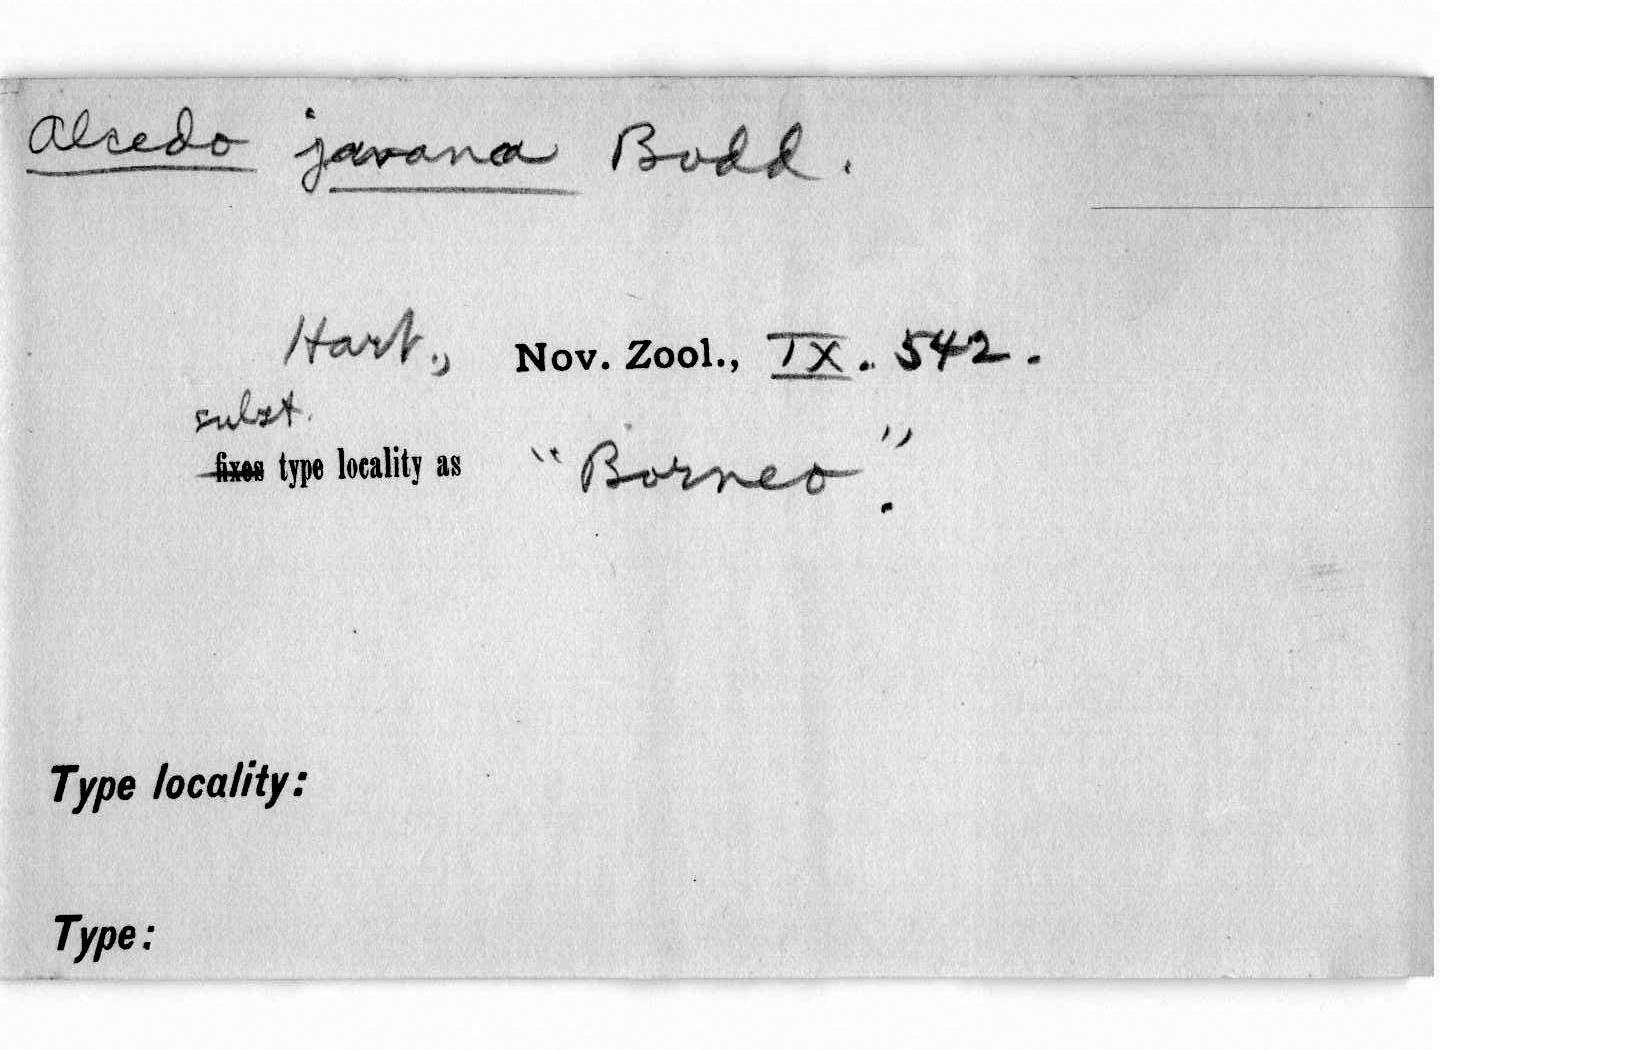 Alcedo javana Bodd.
Hart., Nov. Zool., IX. 542.
subst.
fixes type locality as "Borneo".
Type locality:
Type: